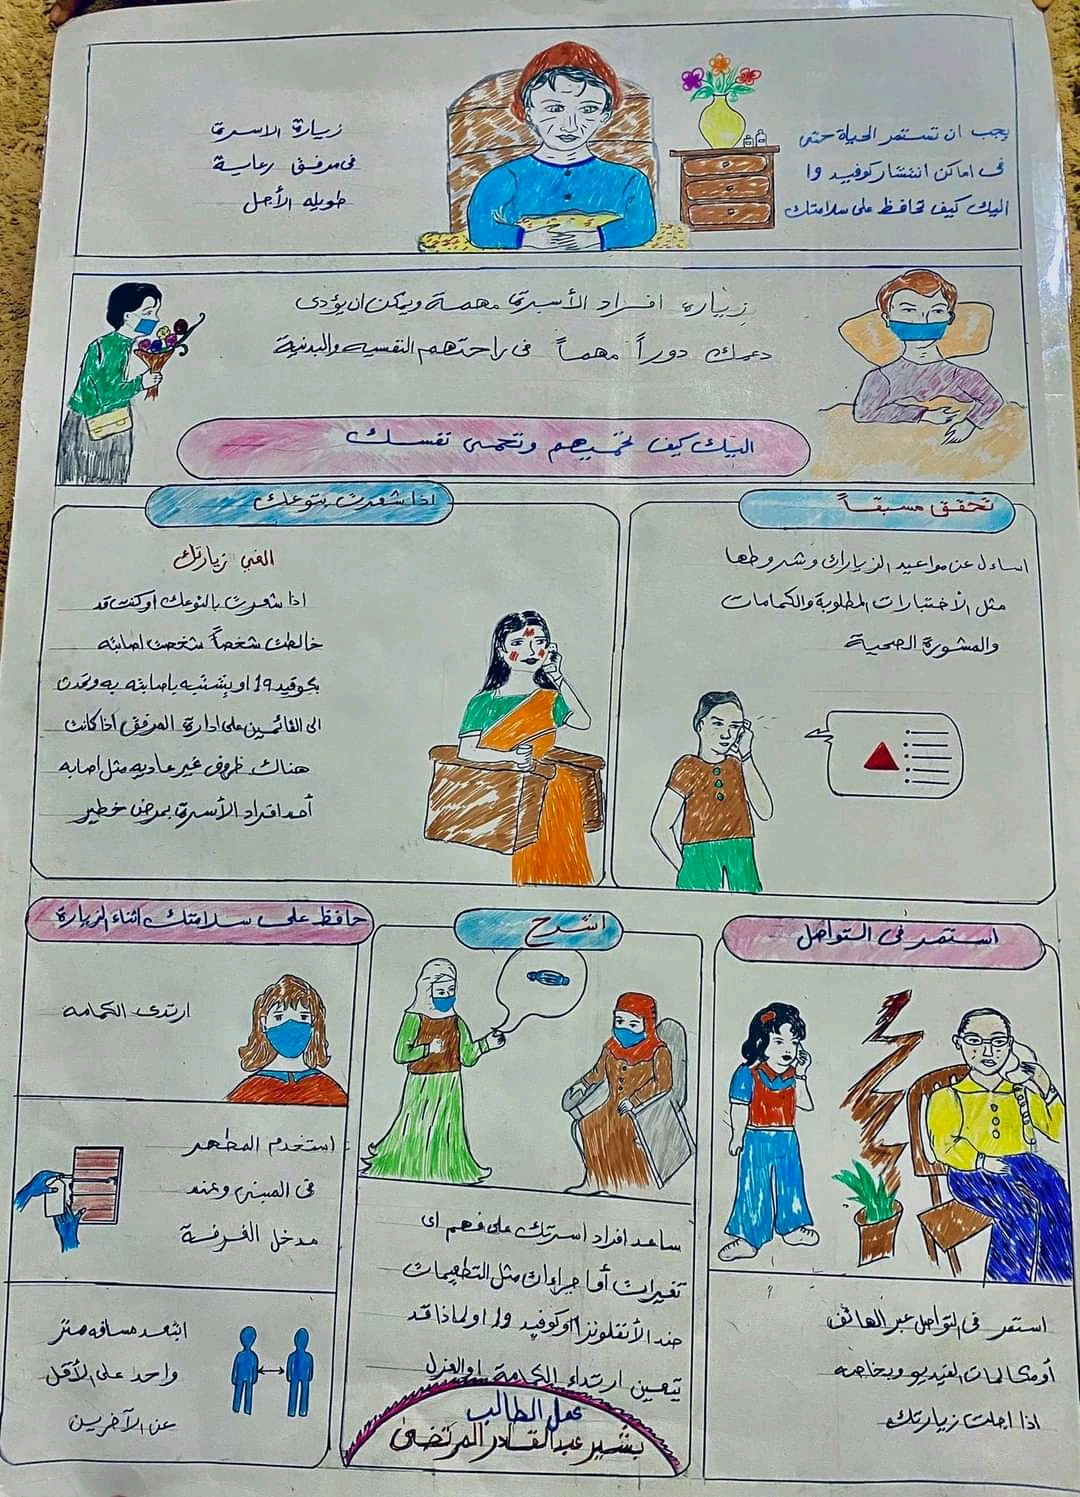 يجب ان تستمر الحياة حتى
فى اماكن انتشار كوفيد ١٩
اليك كيف تحافظ على سلامتك
زيارة الاسرة
فى مرفق رعاية
طويله الأجل
زيارة افراد الأسرة مهمة ويمكن ان يؤدى
دعمك دوراً مهماً فى راحتهم النفسيه والبدنية
اليك كيف تحميهم وتحمى نفسك
تحقق مسبقاً
اساءل عن مواعيد الزيارات وشروطها
مثل الأختبارات المطلوبة والكمامات
والمشورة الصحية
اذا شعرت بتوعك
الغي زيارتك
اذا شعرت بالتوعك او كنت قد
خالطت شخصاً شخصت اصابته
بكوفيد 19 او يشتبه باصابته به وتحدث
الى القائمين على ادارة المرفق اذا كانت
هناك ظروف غير عاديه مثل اصابه
أحد افراد الأسرة بمرض خطير
استمر فى التواصل
استمر فى التواصل عبر الهاتف
أو مكالمات الفيديو وبخاصه
اذا اجلت زيارتك
اشرح
ساعد افراد اسرتك على فهم اى
تغيرات أو اجراءات مثل التطعيمات
ضد الأنفلونزا أو كوفيد ١٩ او لماذا قد
يتعين ارتداء الكمامة او العزل
حافظ على سلامتك اثناء الزيارة
ارتدى الكمامه
استخدم المطهر
فى المبنى وعند
مدخل الغرفة
ابتعد مسافه متر
واحد على الأقل
عن الآخرين
عمل الطالب
بشير عبدالقادر المرتضى